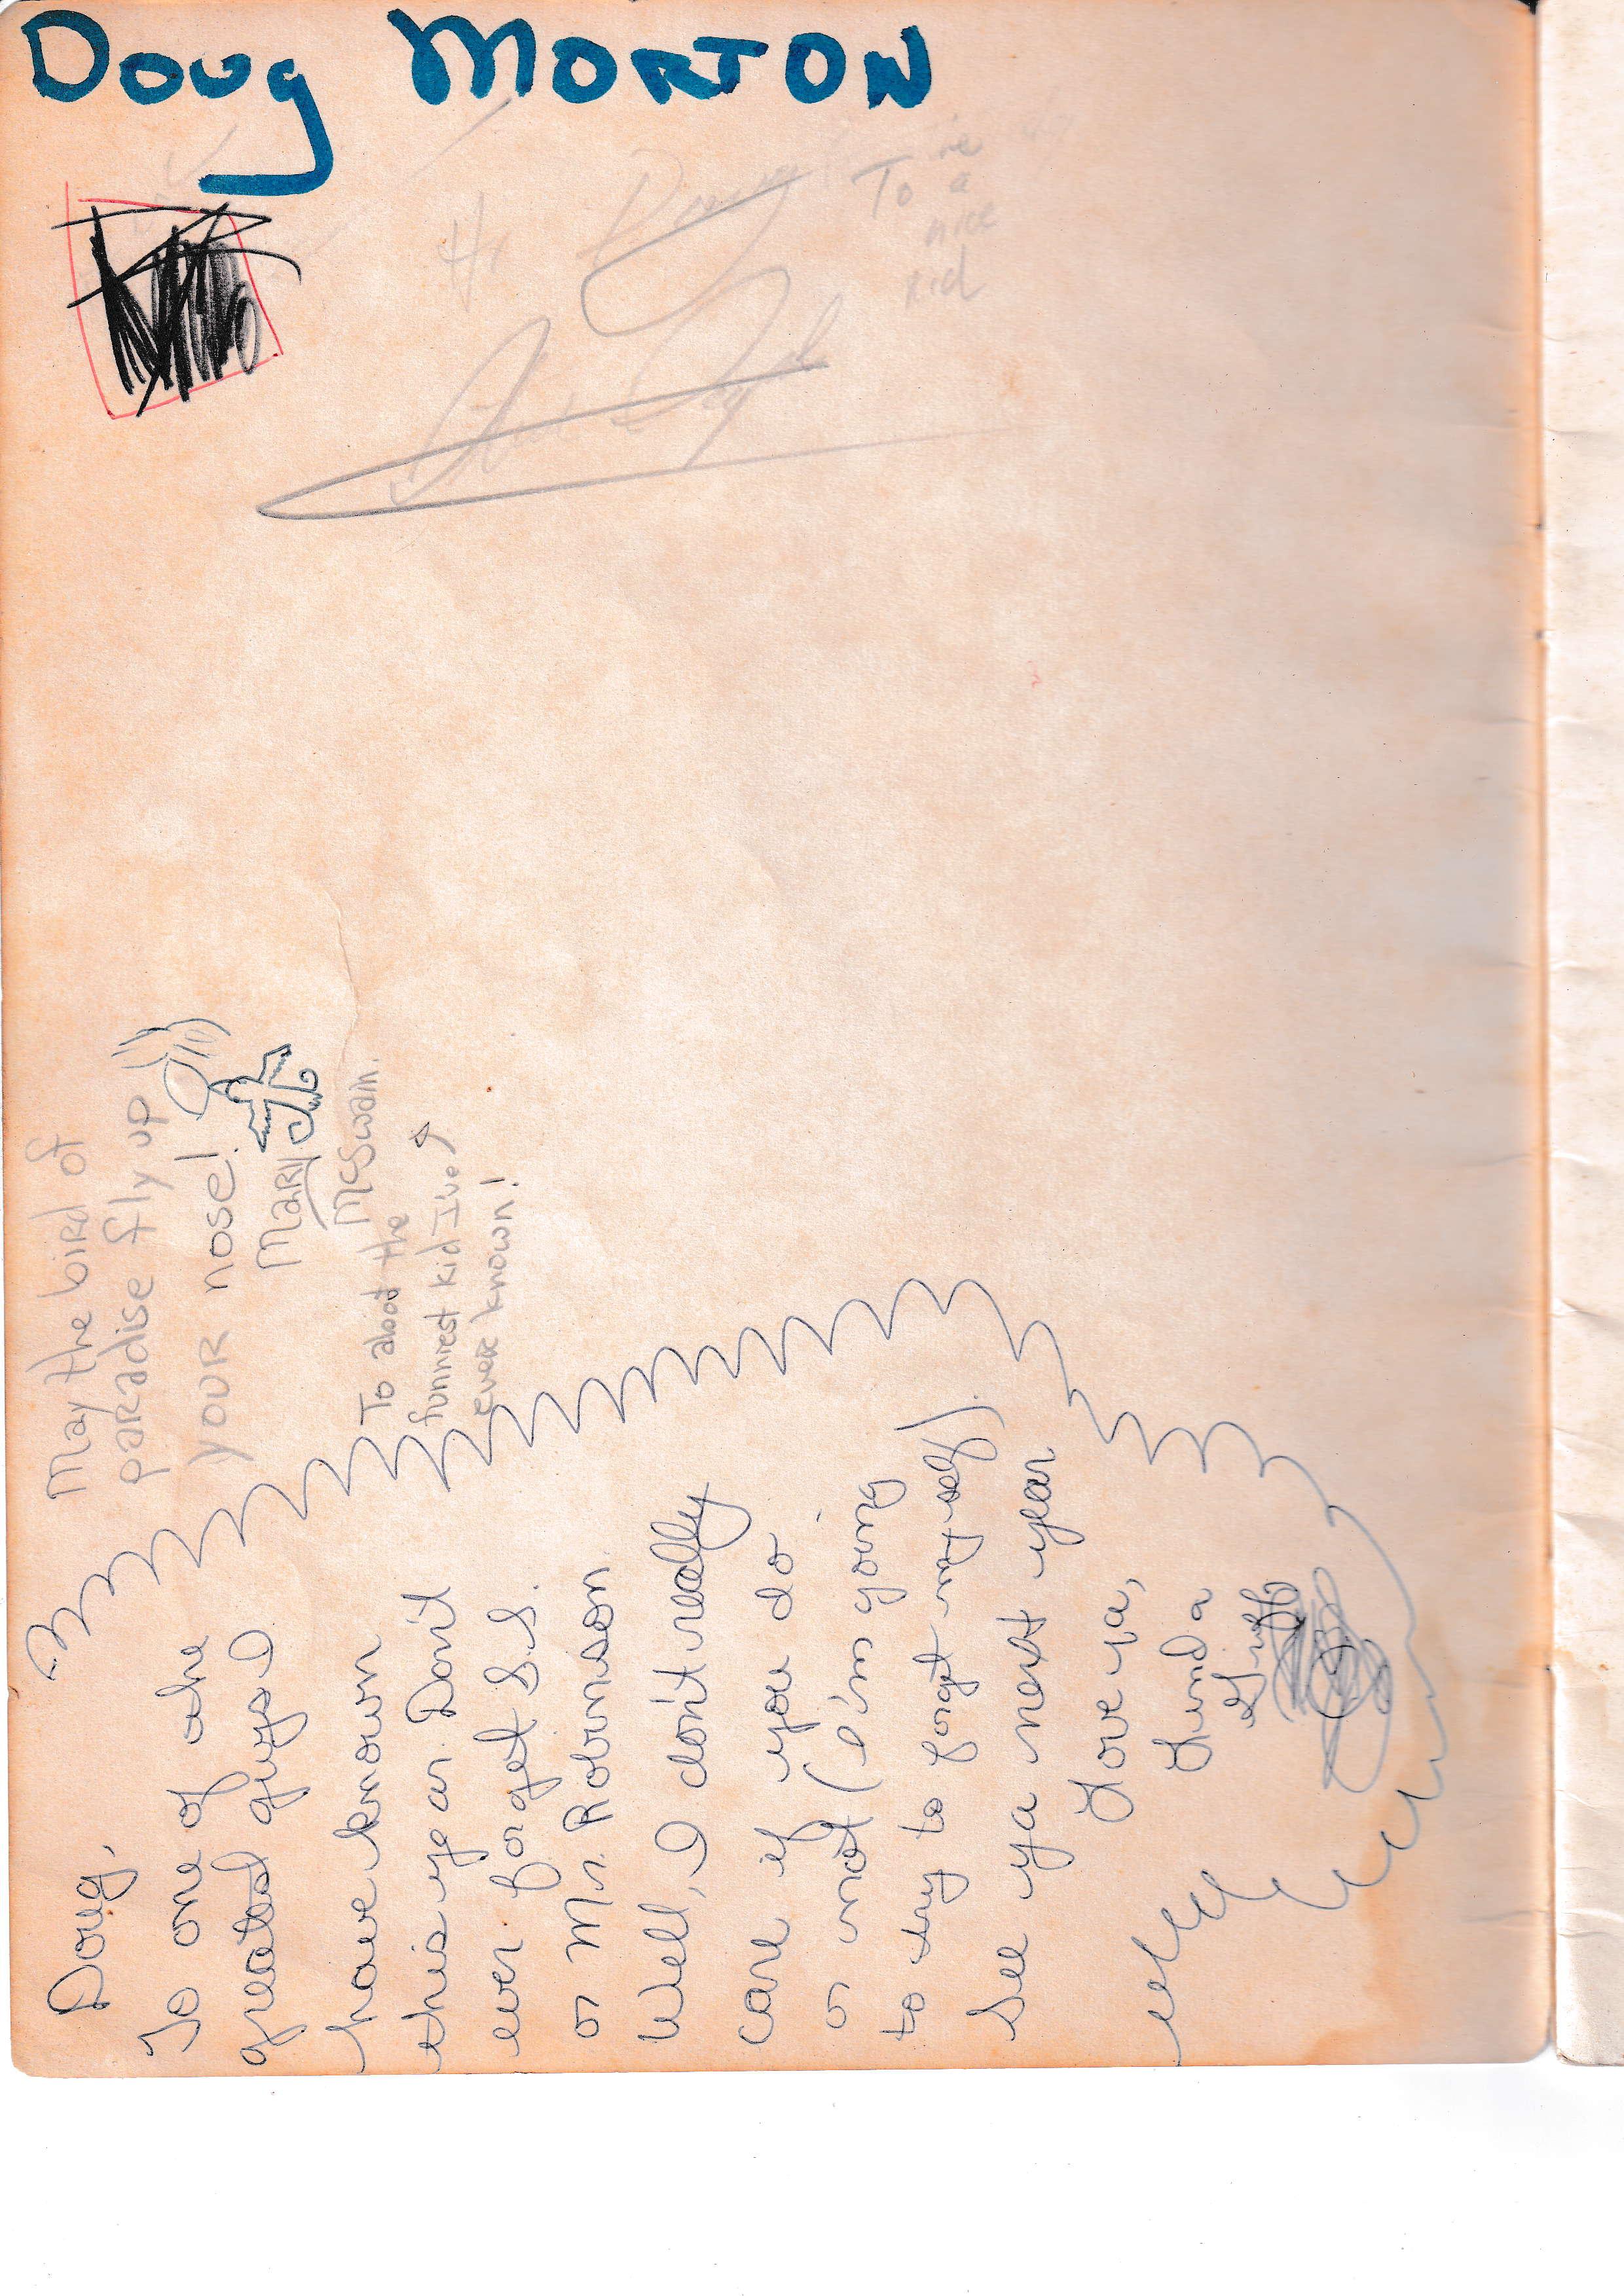 Doug MORTON
Hi
To a
nice
kid
May the bird of
paradise fly up
your nose!
Mary
McSwain.
To aboot the
funniest kid I've
ever known!
Doug,
To one of the
greatest guys I
have known
this year. Don't
ever forget S.S.
or Mr. Robinson.
Well, I don't really
care if you do
or not (I'm going
to try to forget myself).
See ya next year
Love ya,
Lunda